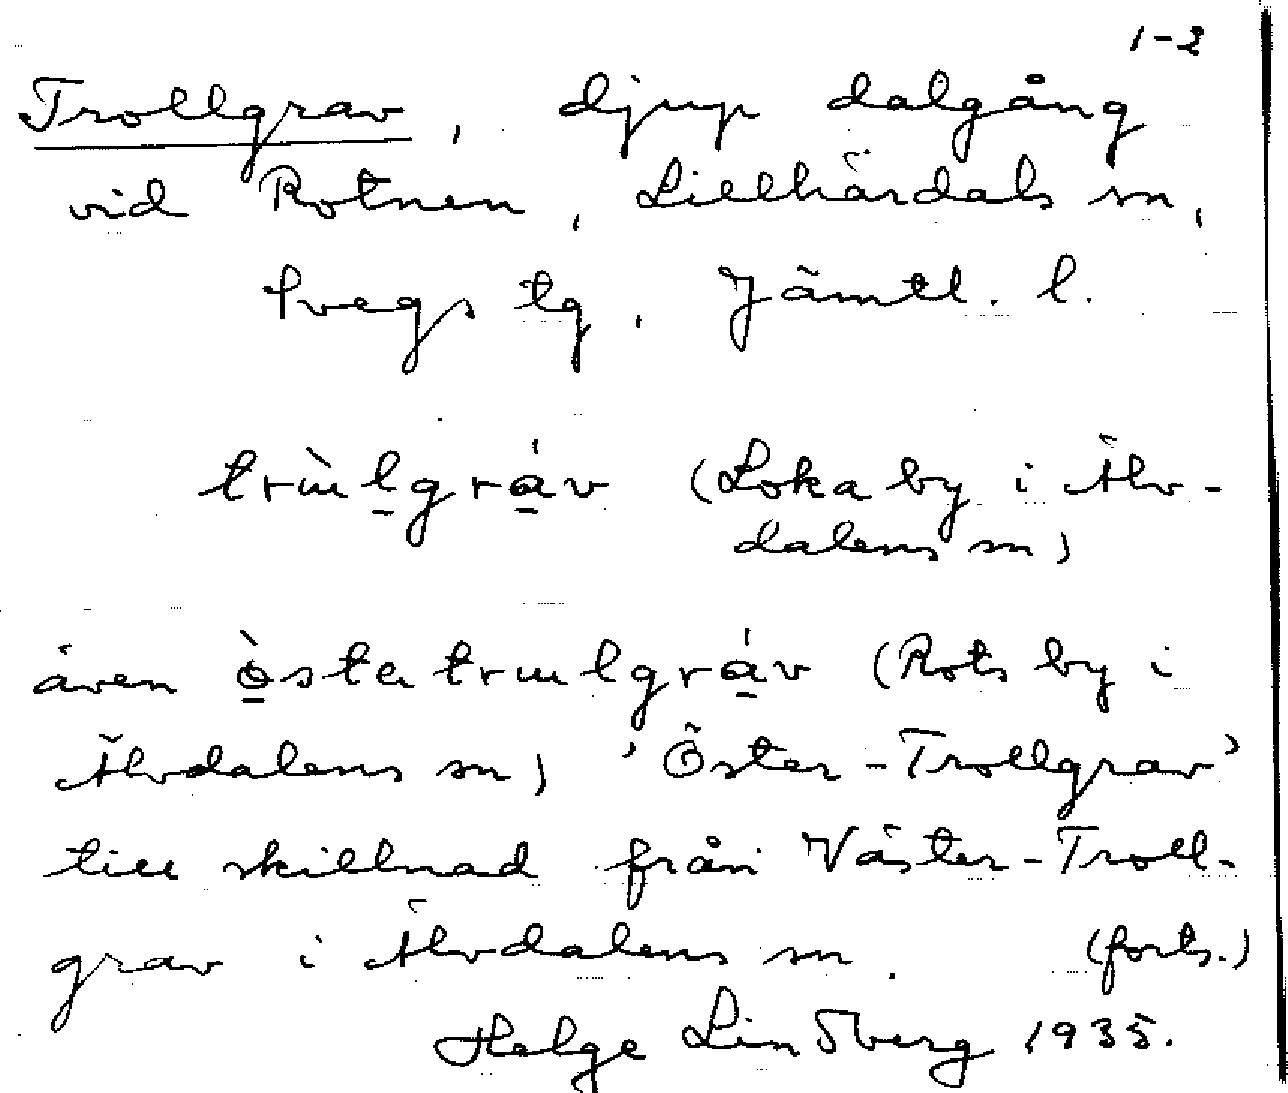 1-2
Trollgrav, djup dalgång
vid Rotnen, Lillhärdals sn,
Svegs tg, Jämtl. l.
(Loka by i Älv-
dalens sn)
även (Rots by i
Älvdalens sn) 'Öster-Trollgrav'
till skillnad från Väster-Troll-
grav i Älvdalens sn. (forts.)
Helge Lindberg 1935.